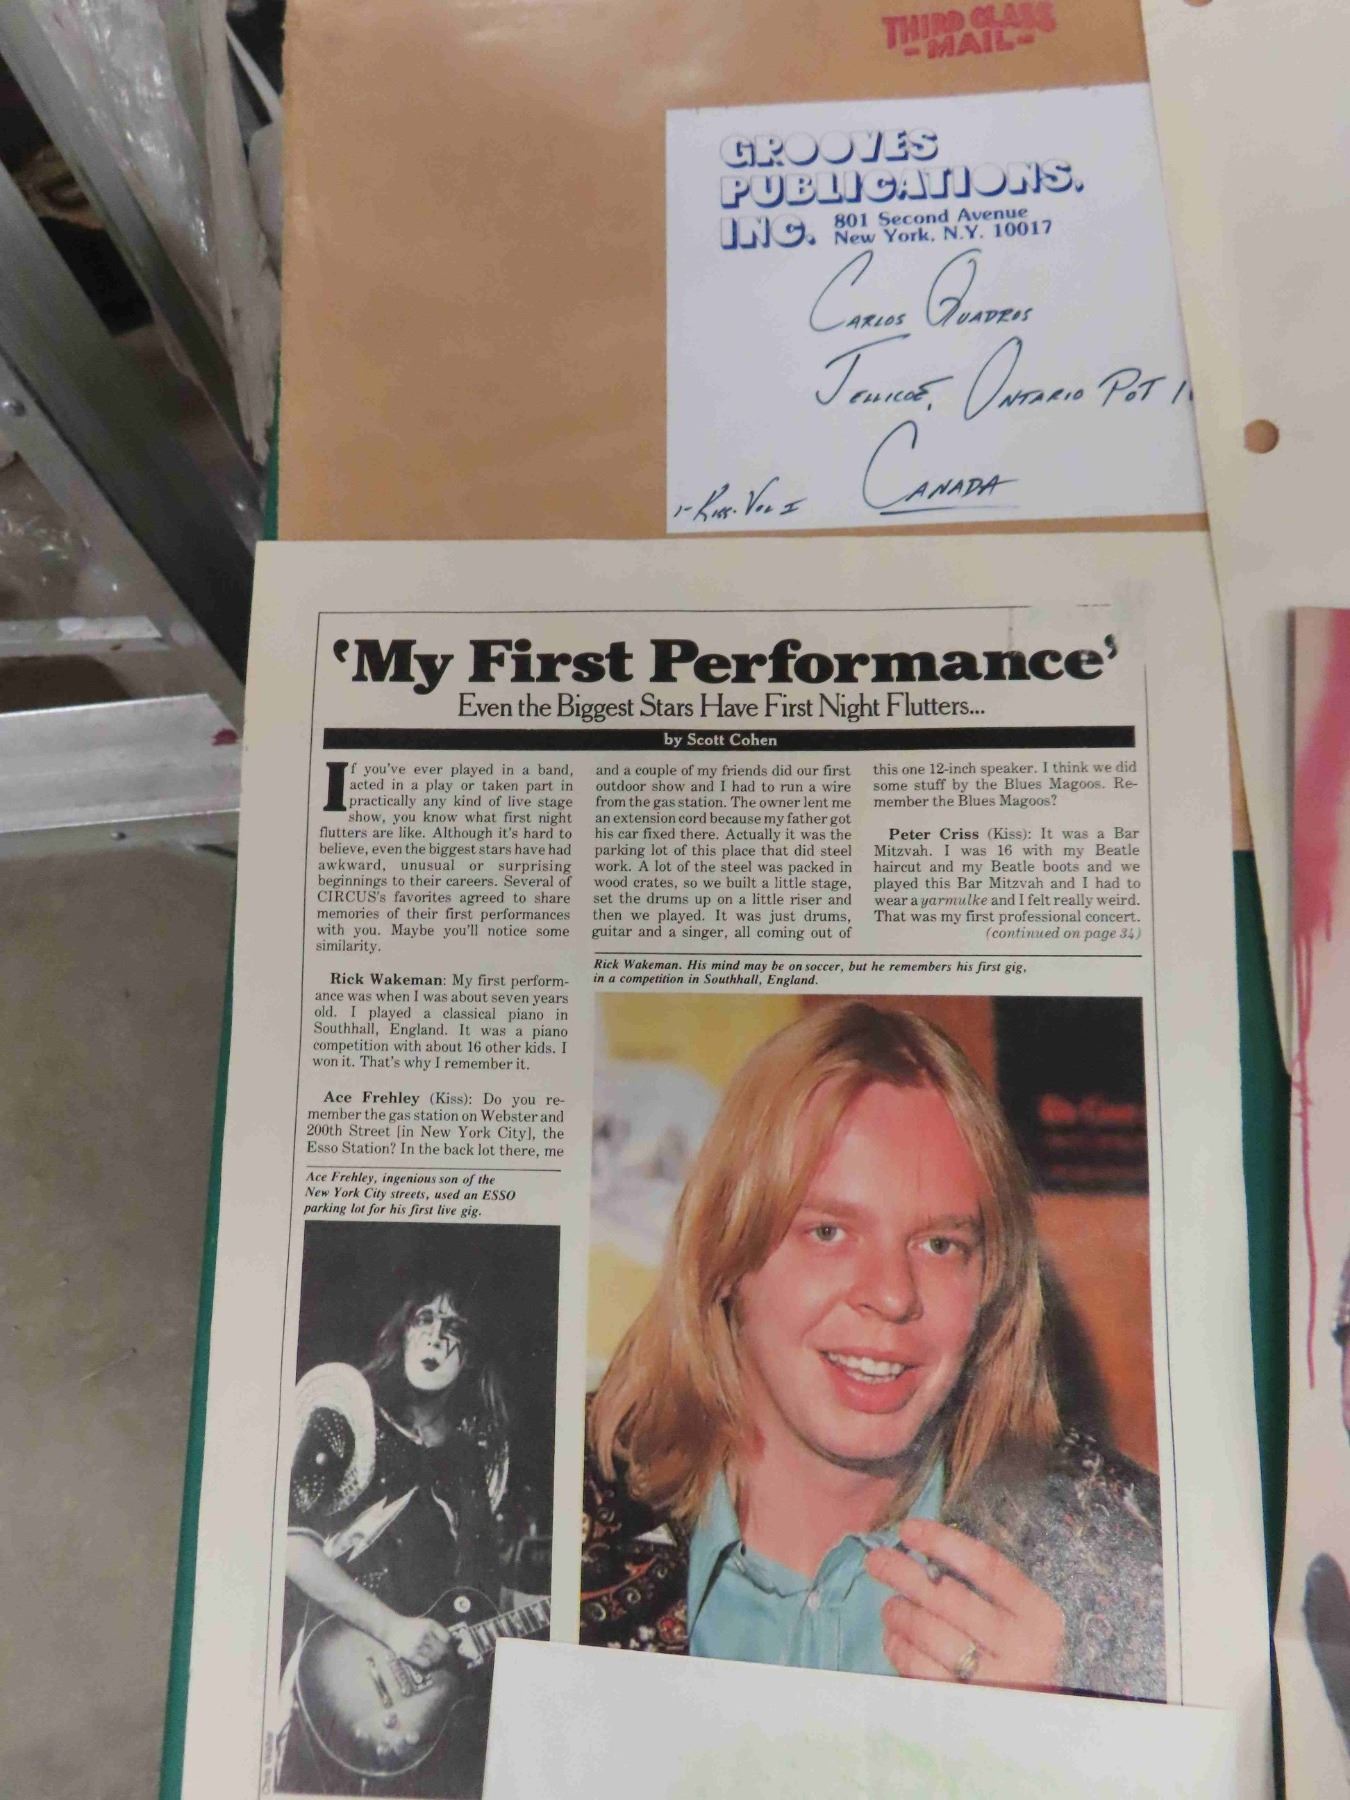 THIRD CLASS
- MAIL -
GROOVES
PUBLICATIONS,
INC. 801 Second Avenue
New York, N.Y. 10017
CARLOS QUADROS
JELLICOE, ONTARIO POT 1
CANADA
1- KISS. VOL I
'My First Performance'
Even the Biggest Stars Have First Night Flutters...
by Scott Cohen
If you've ever played in a band,
acted in a play or taken part in
practically any kind of live stage
show, you know what first night
flutters are like. Although it's hard to
believe, even the biggest stars have had
awkward, unusual or surprising
beginnings to their careers. Several of
CIRCUS's favorites agreed to share
memories of their first performances
with you. Maybe you'll notice some
similarity.
Rick Wakeman: My first perform-
ance was when I was about seven years
old. I played a classical piano in
Southhall, England. It was a piano
competition with about 16 other kids. I
won it. That's why I remember it.
Ace Frehley (Kiss): Do you re-
member the gas station on Webster and
200th Street [in New York City], the
Esso Station? In the back lot there, me
Ace Frehley, ingenious son of the
New York City streets, used an ESSO
parking lot for his first live gig.
and a couple of my friends did our first
outdoor show and I had to run a wire
from the gas station. The owner lent me
an extension cord because my father got
his car fixed there. Actually it was the
parking lot of this place that did steel
work. A lot of the steel was packed in
wood crates, so we built a little stage,
set the drums up on a little riser and
then we played. It was just drums,
guitar and a singer, all coming out of
this one 12-inch speaker. I think we did
some stuff by the Blues Magoos. Re-
member the Blues Magoos?
Peter Criss (Kiss): It was a Bar
Mitzvah. I was 16 with my Beatle
haircut and my Beatle boots and we
played this Bar Mitzvah and I had to
wear a yarmulke and I felt really weird.
That was my first professional concert.
(continued on page 34)
Rick Wakeman. His mind may be on soccer, but he remembers his first gig,
in a competition in Southhall, England.